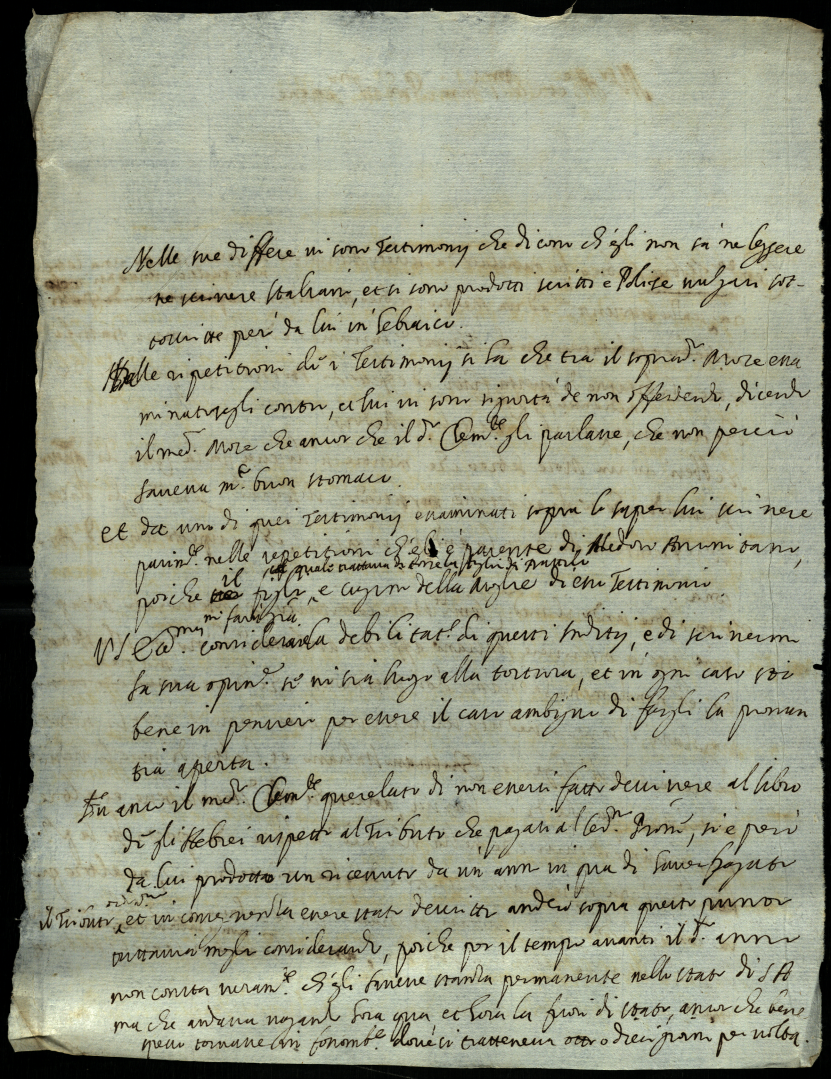 Nelle sue diffese ui sono Testimonij che dicono ch'egli non sà ne leggere
ne scriuere Italiano, et si sono prodotti scritti e Polize uulgari sot-
toscritte però da lui in hebraico.
Dalle ripetitioni dè i Testimonij si hà che tra il soprad.º Moze essa
minatosegli contro, et lui ui sono non offendendo, dicendo
il med.º Moze che ancor che il d.º Clem.te gli parlasse, che non perciò
haueua m.º buon stomaco.
et da uno di quei Testimonij essaminati sopra lo saper lui scriuere
parim.te nelle repetitioni ch'egli è parente di
poiche il figlio, e cugino della Moglie di esso Testimonio
mi farà gra.
V S Ecc.ma considerar la debilità di questi Inditij, e di scriuermi
la sua opin.e se ui sia luogo alla tortura, et in ogni caso stò
bene in pensiero per essere il caso ambiguo di fargli la pronun
tia aperta.
Fu anco il med.º Clem.te querelato di non essersi fatto descriuere al libro
dè gli Hebrei rispetto al Tributo che pagano al, si è però
da lui prodotto un riceuuto da un anno in qua di hauer pagato
il Tributo, et si come uerria essere stato descritto andrò sopra questo punto
tuttauia considerando, poiche per il tempo auanti il d.º anno
non consta ueram.te ch'egli hauesse stanza permanente nello stato di S A
ma che andaua uagando hora qua et hora là fuori di stato, ancor che bene
spesso tornasse in doue si tratteneua otto o dieci giorni per uolta.